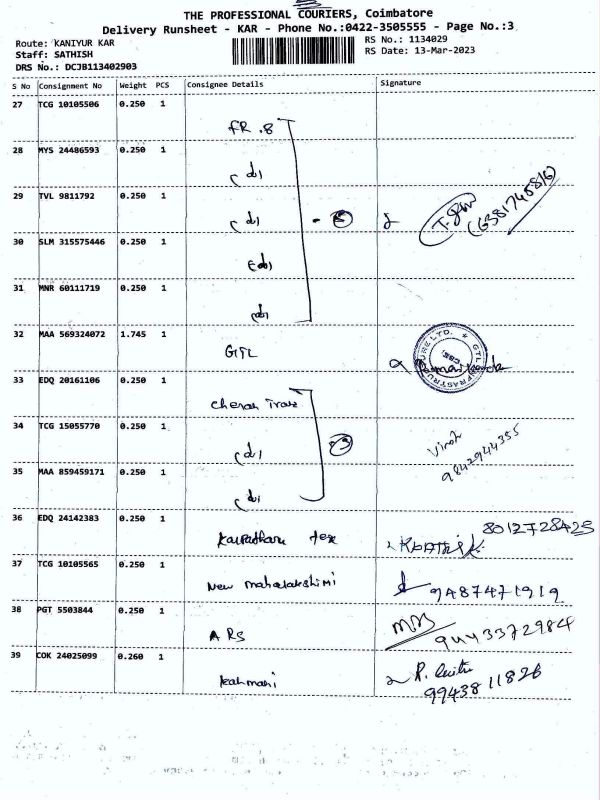 THE PROFESSIONAL COURIERS, Coimbatore
Delivery Runsheet - KAR - Phone No.:0422-3505555 - Page No.:3
Route: KANIYUR KAR
RS No.: 1134029
Staff: SATHISH
RS Date: 13-Mar-2023
DRS No.: DCJB113402903
S No Consignment No Weight PCS Consignee Details Signature
27 TCG 10105506 0.250 1
FR .8
28 MYS 24486593 0.250 1
29 TVL 9811792 0.250 1
(6381745816)
30 SLM 315575446 0.250 1
31 MNR 60111719 0.250 1
32 MAA 569324072 1.745 1
GTL
GTL INFRASTRUCTURE LTD. ★ CBE.
33 EDQ 20161106 0.250 1
Cheran
34 TCG 15055770 0.250 1
3
9842944355
35 MAA 859459171 0.250 1
36 EDQ 24142383 0.250 1
tex
8012728425
37 TCG 10105565 0.250 1
New mahalakshimi
9487471919
38 PGT 5503844 0.250 1
ARS
9443372984
39 COK 24025099 0.260 1
9943811826